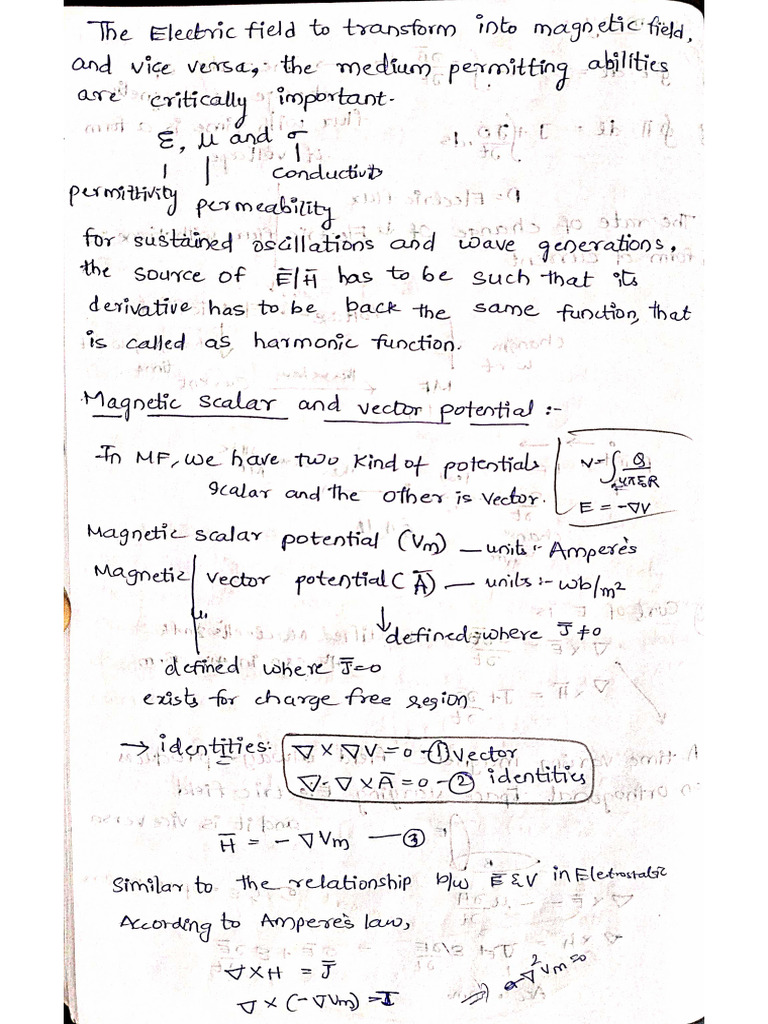 The Electric field to transform into magnetic field,
and vice versa, the medium permitting abilities
are critically important.
ε, μ and σ
conductivity
permittivity permeability
for sustained oscillations and wave generations,
the source of E̅/H̅ has to be such that its
derivative has to be back the same function, that
is called as harmonic function.
Magnetic scalar and vector potential :-
-In MF, we have two kind of potentials
scalar and the other is vector.
V=∫ Q/4πεR
E = -∇V
Magnetic scalar potential (Vm) — units :- Ampere's
Magnetic vector potential (A̅) — units :- wb/m²
defined; where J̅≠0
defined where J̅=0
exists for charge free region
→ identities: ∇×∇V=0 -① vector
∇·∇×A̅=0-② identities
H̅ = -∇Vm —③
Similar to the relationship b/w E̅ & V in Eletrostatic
According to Ampere's law,
∇×H = J̅
∇×(-∇Vm) = J̅ ⇒ ∇²Vm=0